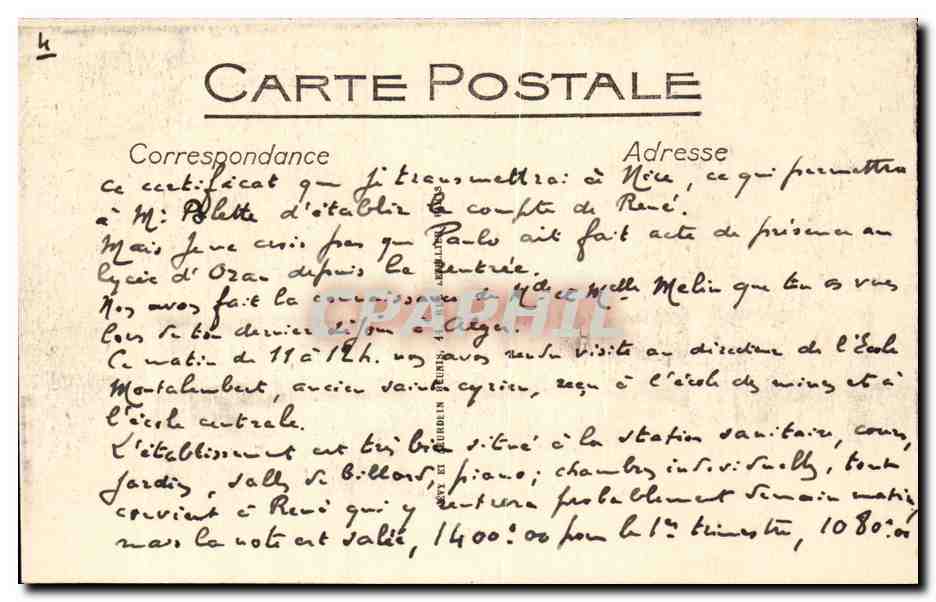 4
CARTE POSTALE
Correspondance
Adresse
ce certificat que je transmettrai à Nice, ce qui permettra
à Mr Polette d'établir le compte de René.
Mais je ne crois pas que Paulo ait fait acte de présence au
lycée d'Oran depuis la rentrée.
Nos avons fait la connaissance de Mde et Melle Melin que tu as vues
lors de ton dernier séjour à Alger.
Ce matin de 11 à 12h. nos avons rendu visite au directeur de l'École
Montalembert, ancien saint cyrien, reçu à l'école des mines et à
l'école centrale.
L'établissement est très bien situé à la station sanitaire, cours,
jardin, salle de billard, piano; chambres individuelles, tout
convient à René qui y rentrera probablement demain matin,
mais la note est salée, 1400:00 pour le 1er trimestre, 1080:00
LÉVY ET NEURDEIN RÉUNIS, 44, RUE LETELLIER, PARIS
CPARHIL